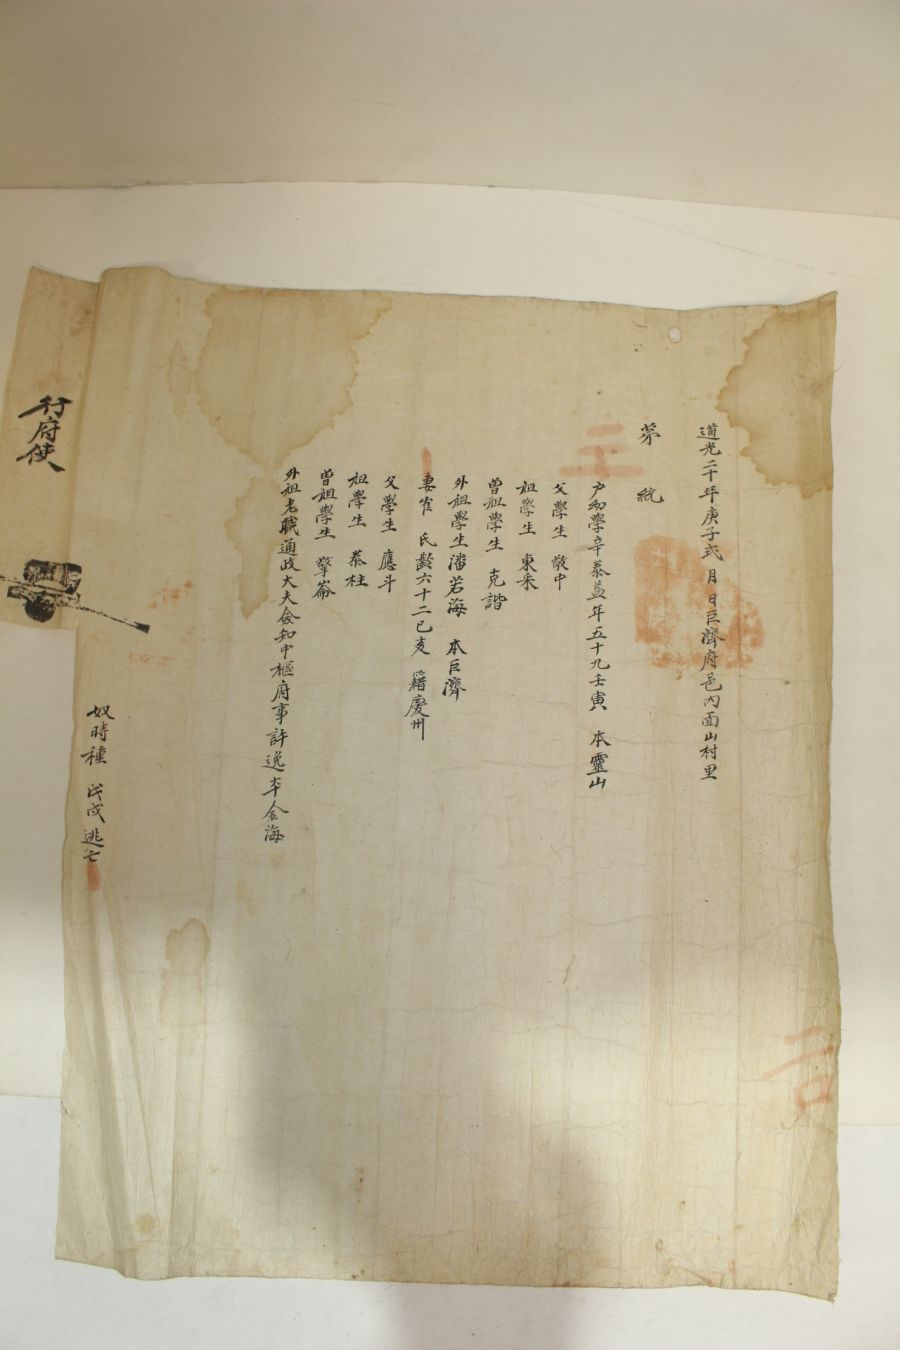 道光二十年庚子式 月 日巨濟府邑內面山村里
第 統
三
戶幼學辛泰益年五十九壬寅 本靈山
父學生 敬中
祖學生 東采
曾祖學生 克諧
外祖學生潘若海 本巨濟
妻崔 氏齡六十二己亥 籍慶州
父學生 應斗
祖學生 泰柱
曾祖學生 擎崙
外祖老職通政大夫僉知中樞府事許逸 本金海
奴時種 戊戌逃亡
行府使